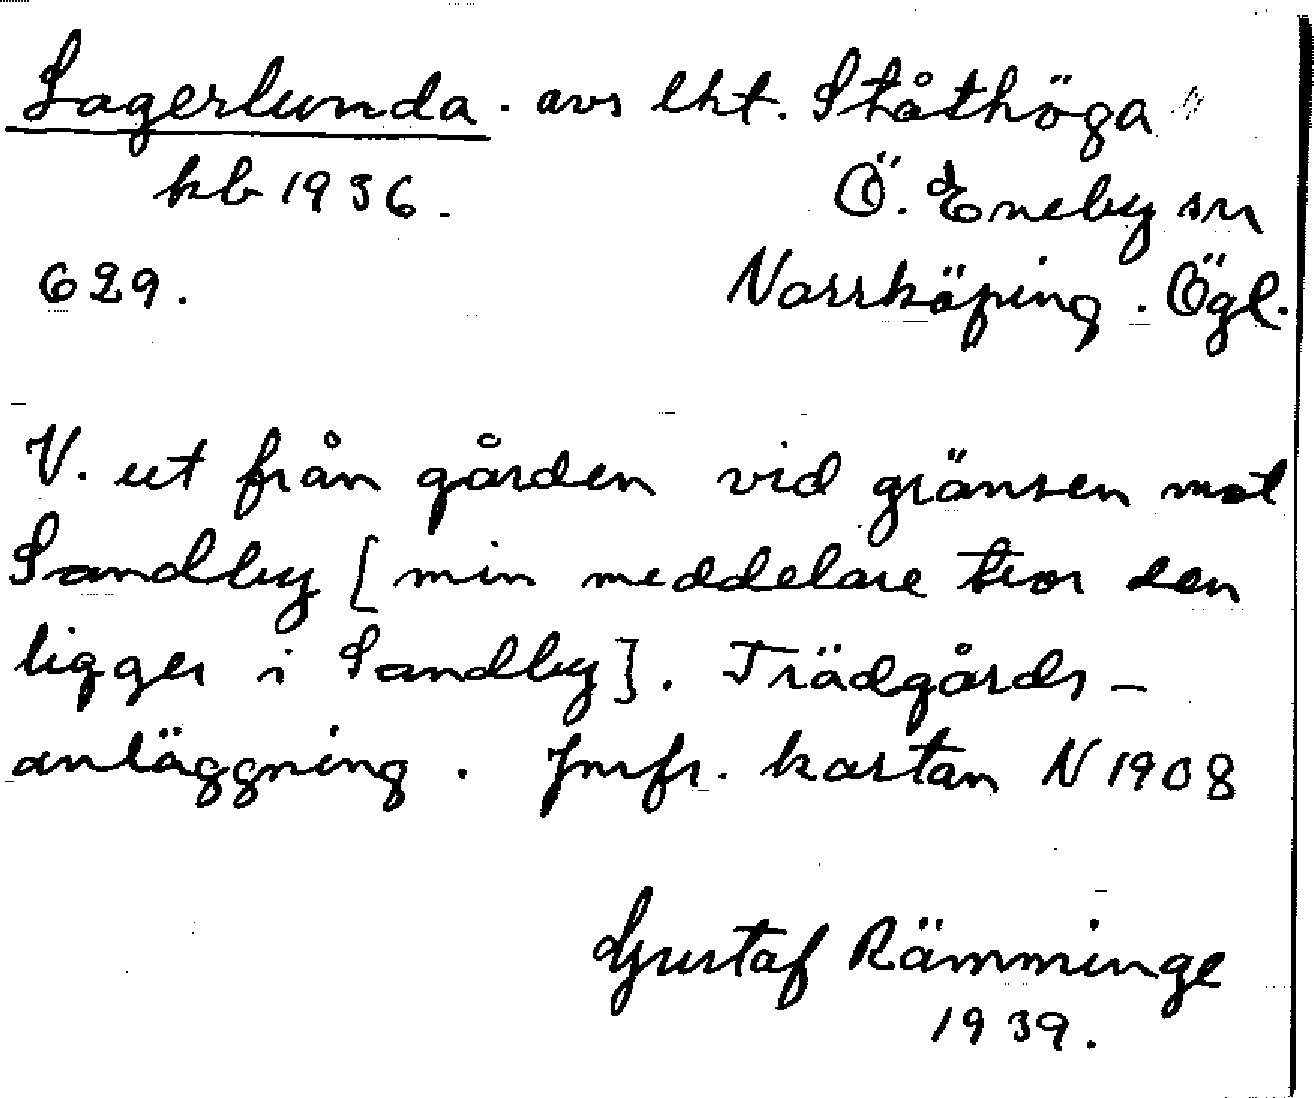 Lagerlunda. avs lht. Ståthöga
kb 1936.
Ö. Eneby sn
629.
Norrköping. Ögl.
V. ut från gården vid gränsen mot
Sandby [min meddelare tror den
ligger i Sandby]. Trädgårds-
anläggning. Jmfr. kartan N 1908
Gustaf Rämminge
1939.